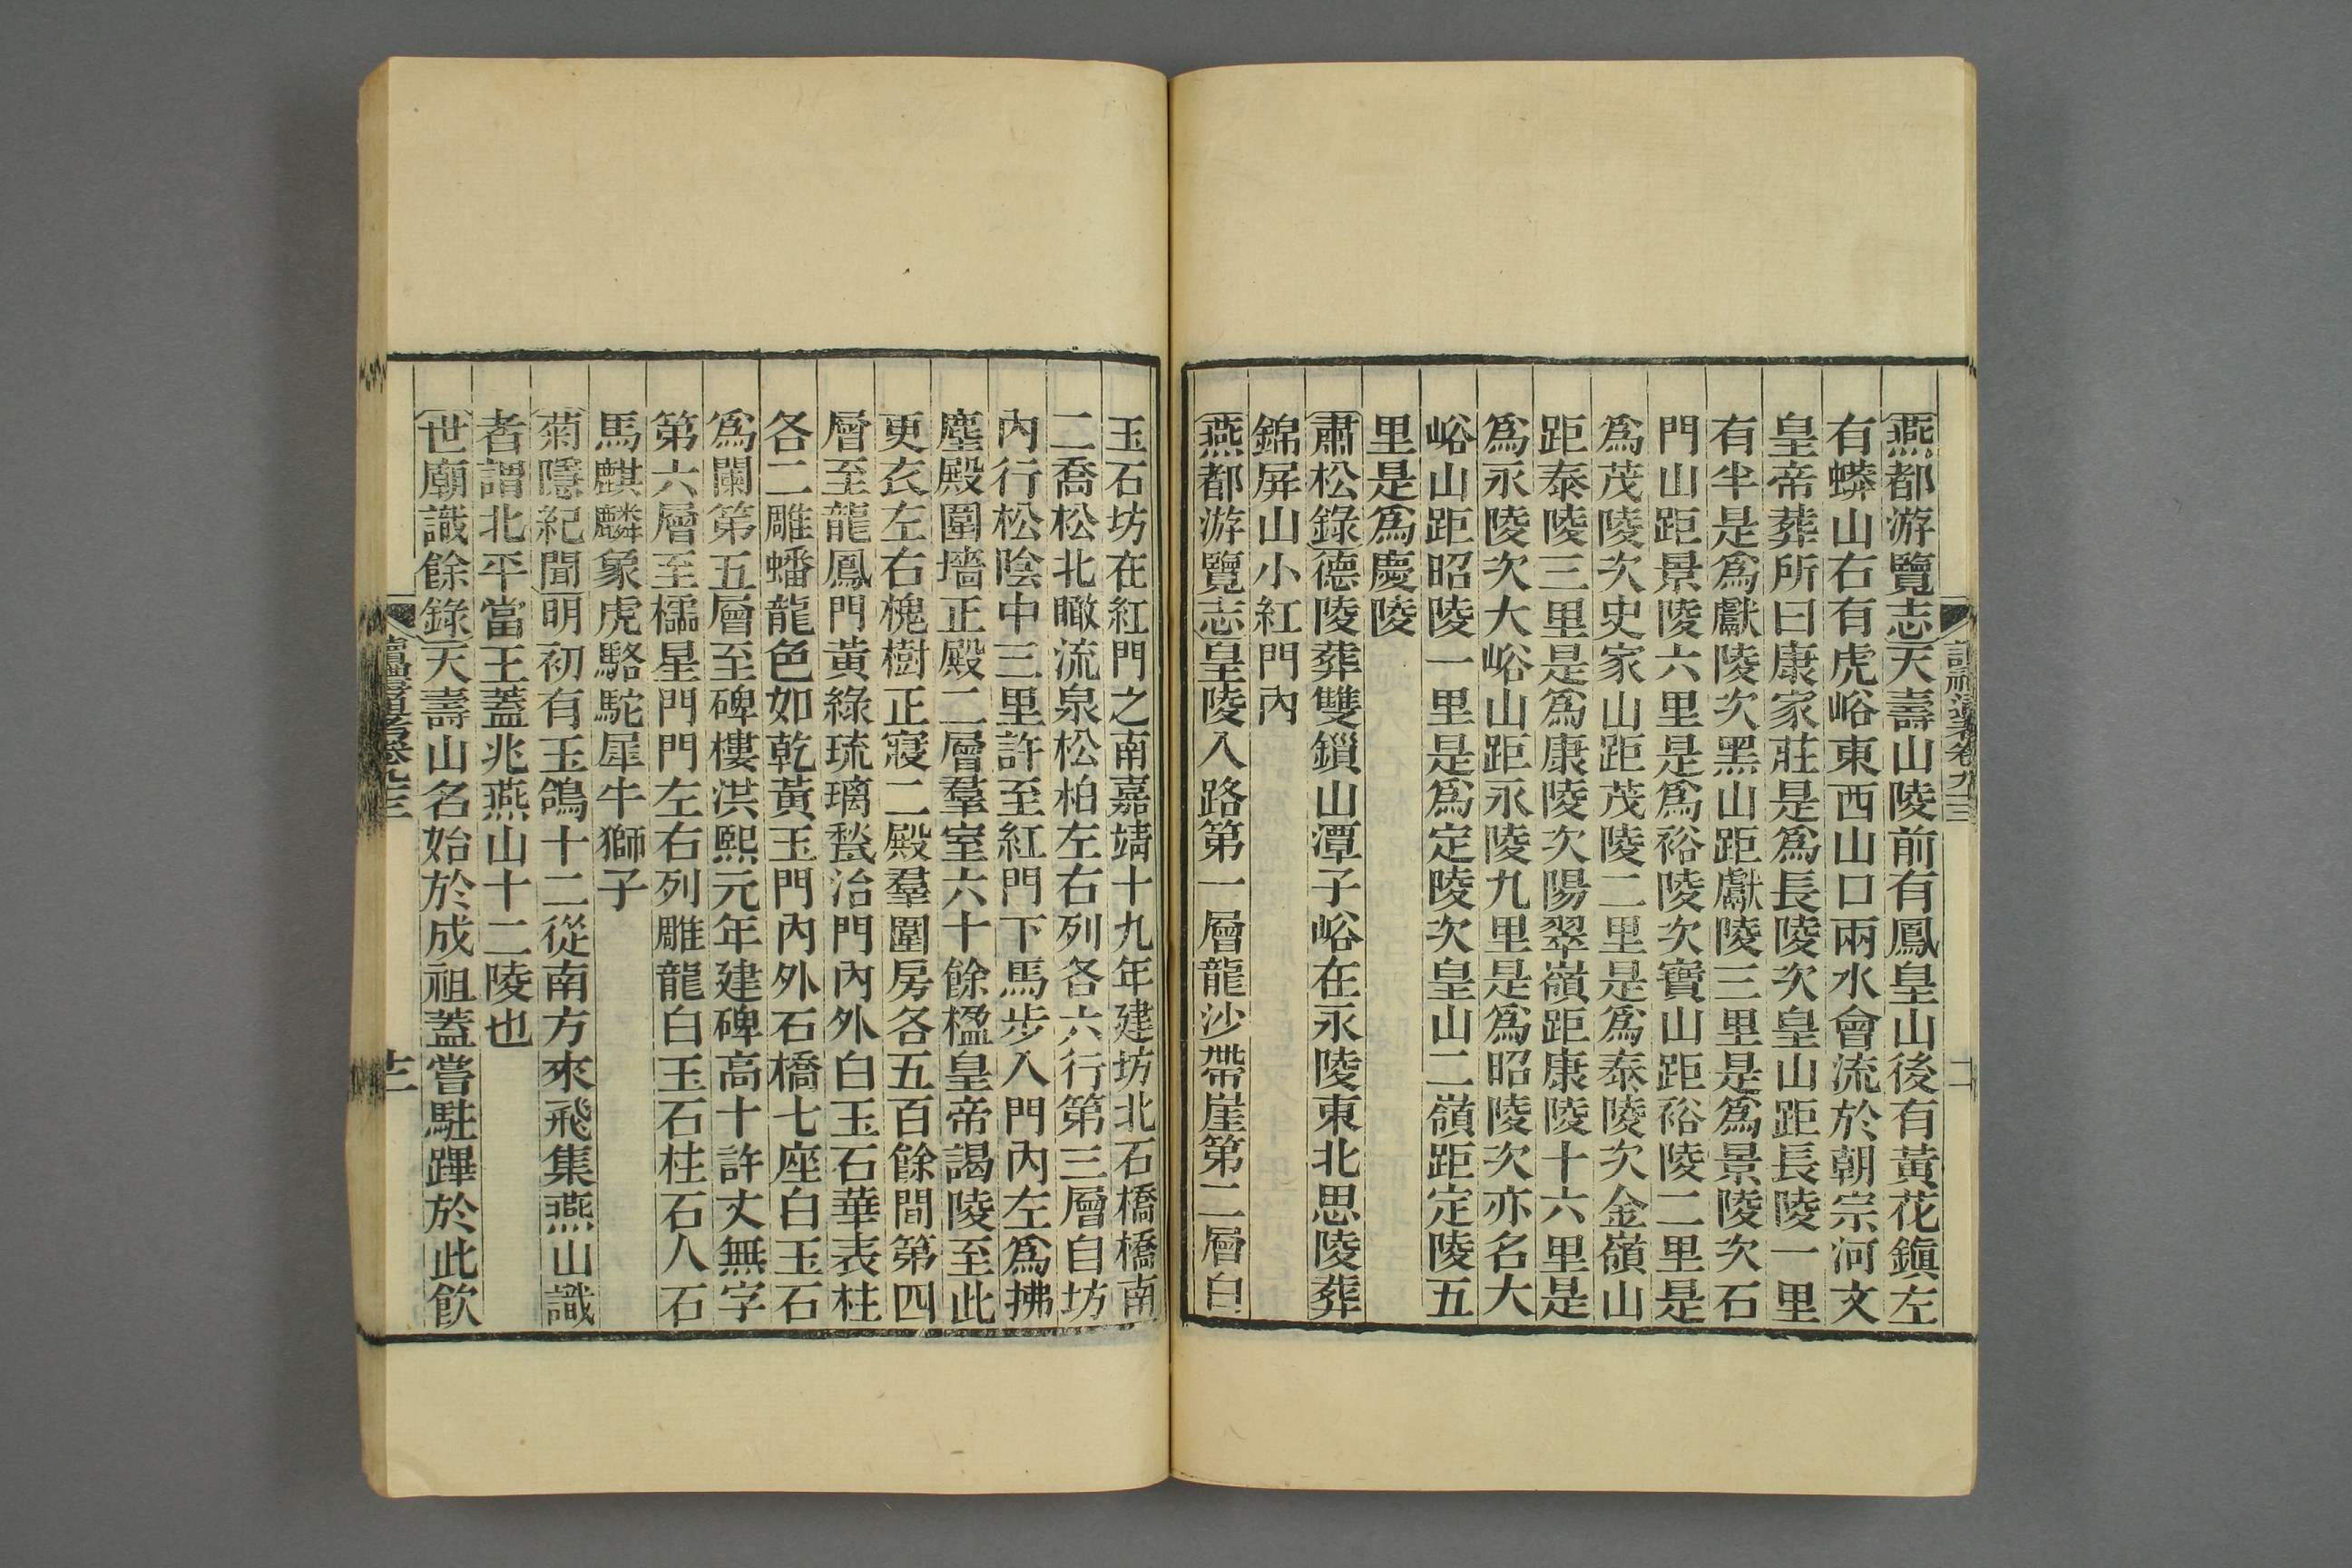 燕都游覽志天壽山陵前有鳳皇山後有黃花鎮左
有蟒山右有虎峪東西山口兩水會流於朝宗河文
皇帝葬所曰康家莊是爲長陵次皇山距長陵一里
有半是爲獻陵次黑山距獻陵三里是爲景陵次石
門山距景陵六里是爲裕陵次寶山距裕陵二里是
爲茂陵次史家山距茂陵二里是爲泰陵次金嶺山
距泰陵三里是爲康陵次陽翠嶺距康陵十六里是
爲永陵次大峪山距永陵九里是爲昭陵次亦名大
峪山距昭陵一里是爲定陵次皇山二嶺距定陵五
里是爲慶陵
肅松錄德陵葬雙鎖山潭子峪在永陵東北思陵葬
錦屏山小紅門內
燕都游覽志皇陵入路第一層龍沙帶崖第二層白
玉石坊在紅門之南嘉靖十九年建坊北石橋橋南
二喬松北瞰流泉松柏左右列各六行第三層自坊
內行松陰中三里許至紅門下馬步入門內左爲拂
塵殿圍墻正殿二層羣室六十餘楹皇帝謁陵至此
更衣左右槐樹正寢二殿羣圍房各五百餘間第四
層至龍鳳門黃綠琉璃甃治門內外白玉石華表柱
各二雕蟠龍色如乾黃玉門內外石橋七座白玉石
爲闌第五層至碑樓洪熙元年建碑高十許丈無字
第六層至櫺星門門左右列雕龍白玉石柱石人石
馬麒麟象虎駱駝犀牛獅子
菊隱紀聞明初有玉鴿十二從南方來飛集燕山識
者謂北平當王蓋兆燕山十二陵也
世廟識餘錄天壽山名始於成祖蓋嘗駐蹕於此飲